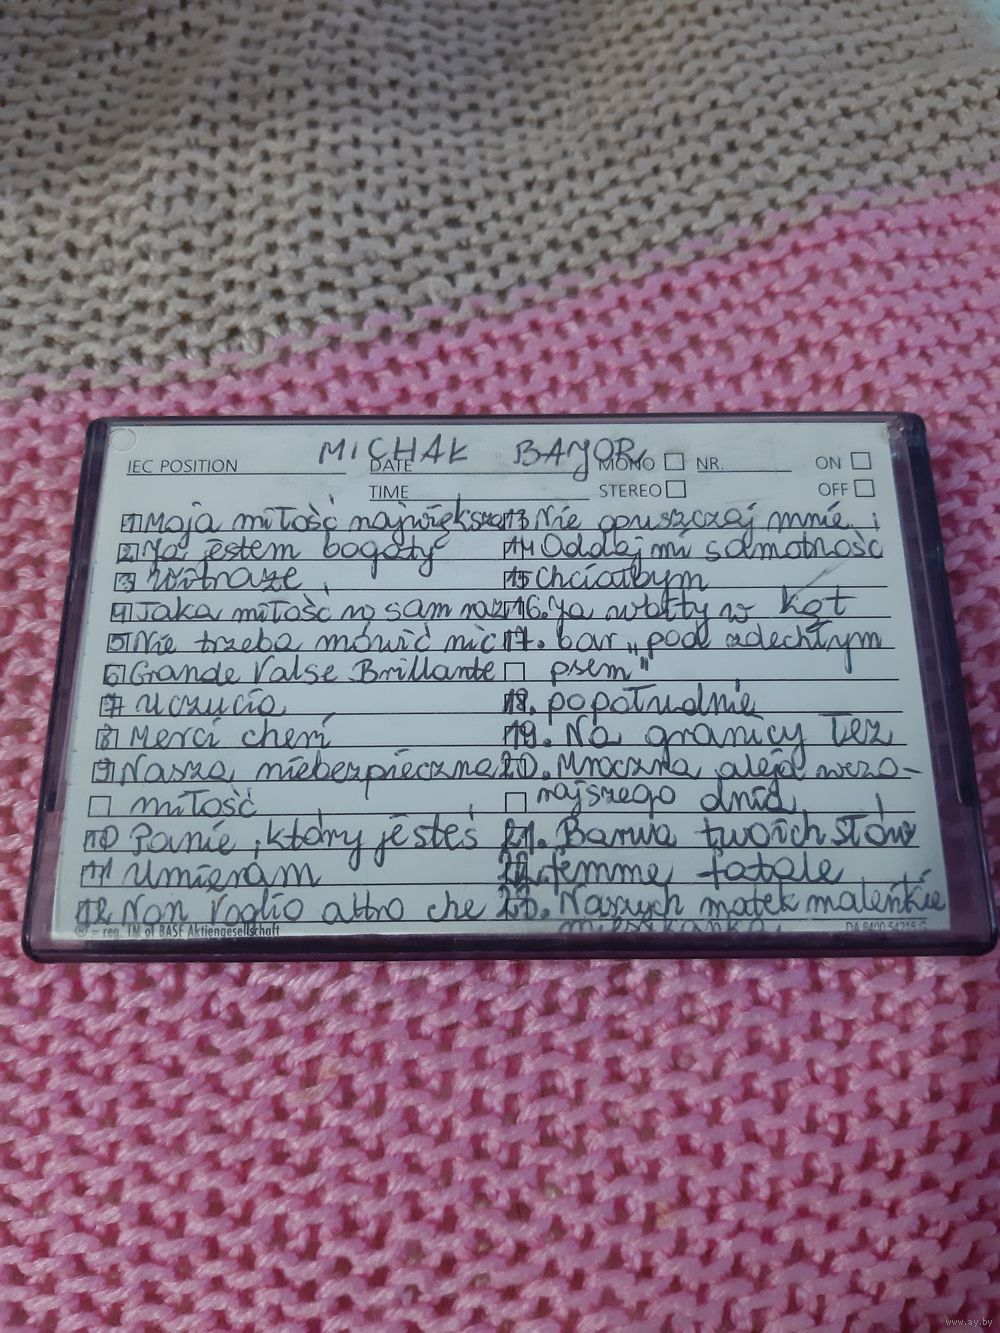 MICHAŁ BAJOR
IEC POSITION DATE MONO NR. ON
TIME STEREO OFF
1 Moja miłość największa
2 Ja jestem bogaty
3 Witraże
4 Jaka miłość no sam raz
5 Nie trzeba mówić nic
6 Grande Valse Brillante
7 Uczucia
8 Merci cheri
9 Nasza niebezpieczna
miłość
10 Panie, który jesteś
11 Umieram
12 Non Voglio altro che
13 Nie opuszczaj mnie
14 Oddaj mi samotność
15 Chciałbym
16. Ja wbity w kąt
17. bar „pod zdechłym
psem"
18. popołudnie
19. Na granicy łez
20. Mroczna aleja wczo-
rajszego dnia
21. Barwa twoich słów
22. femme fatale
23. Naszych matek maleńkie
mieszkanka
® = reg. TM of BASF Aktiengesellschaft
www.ay.by